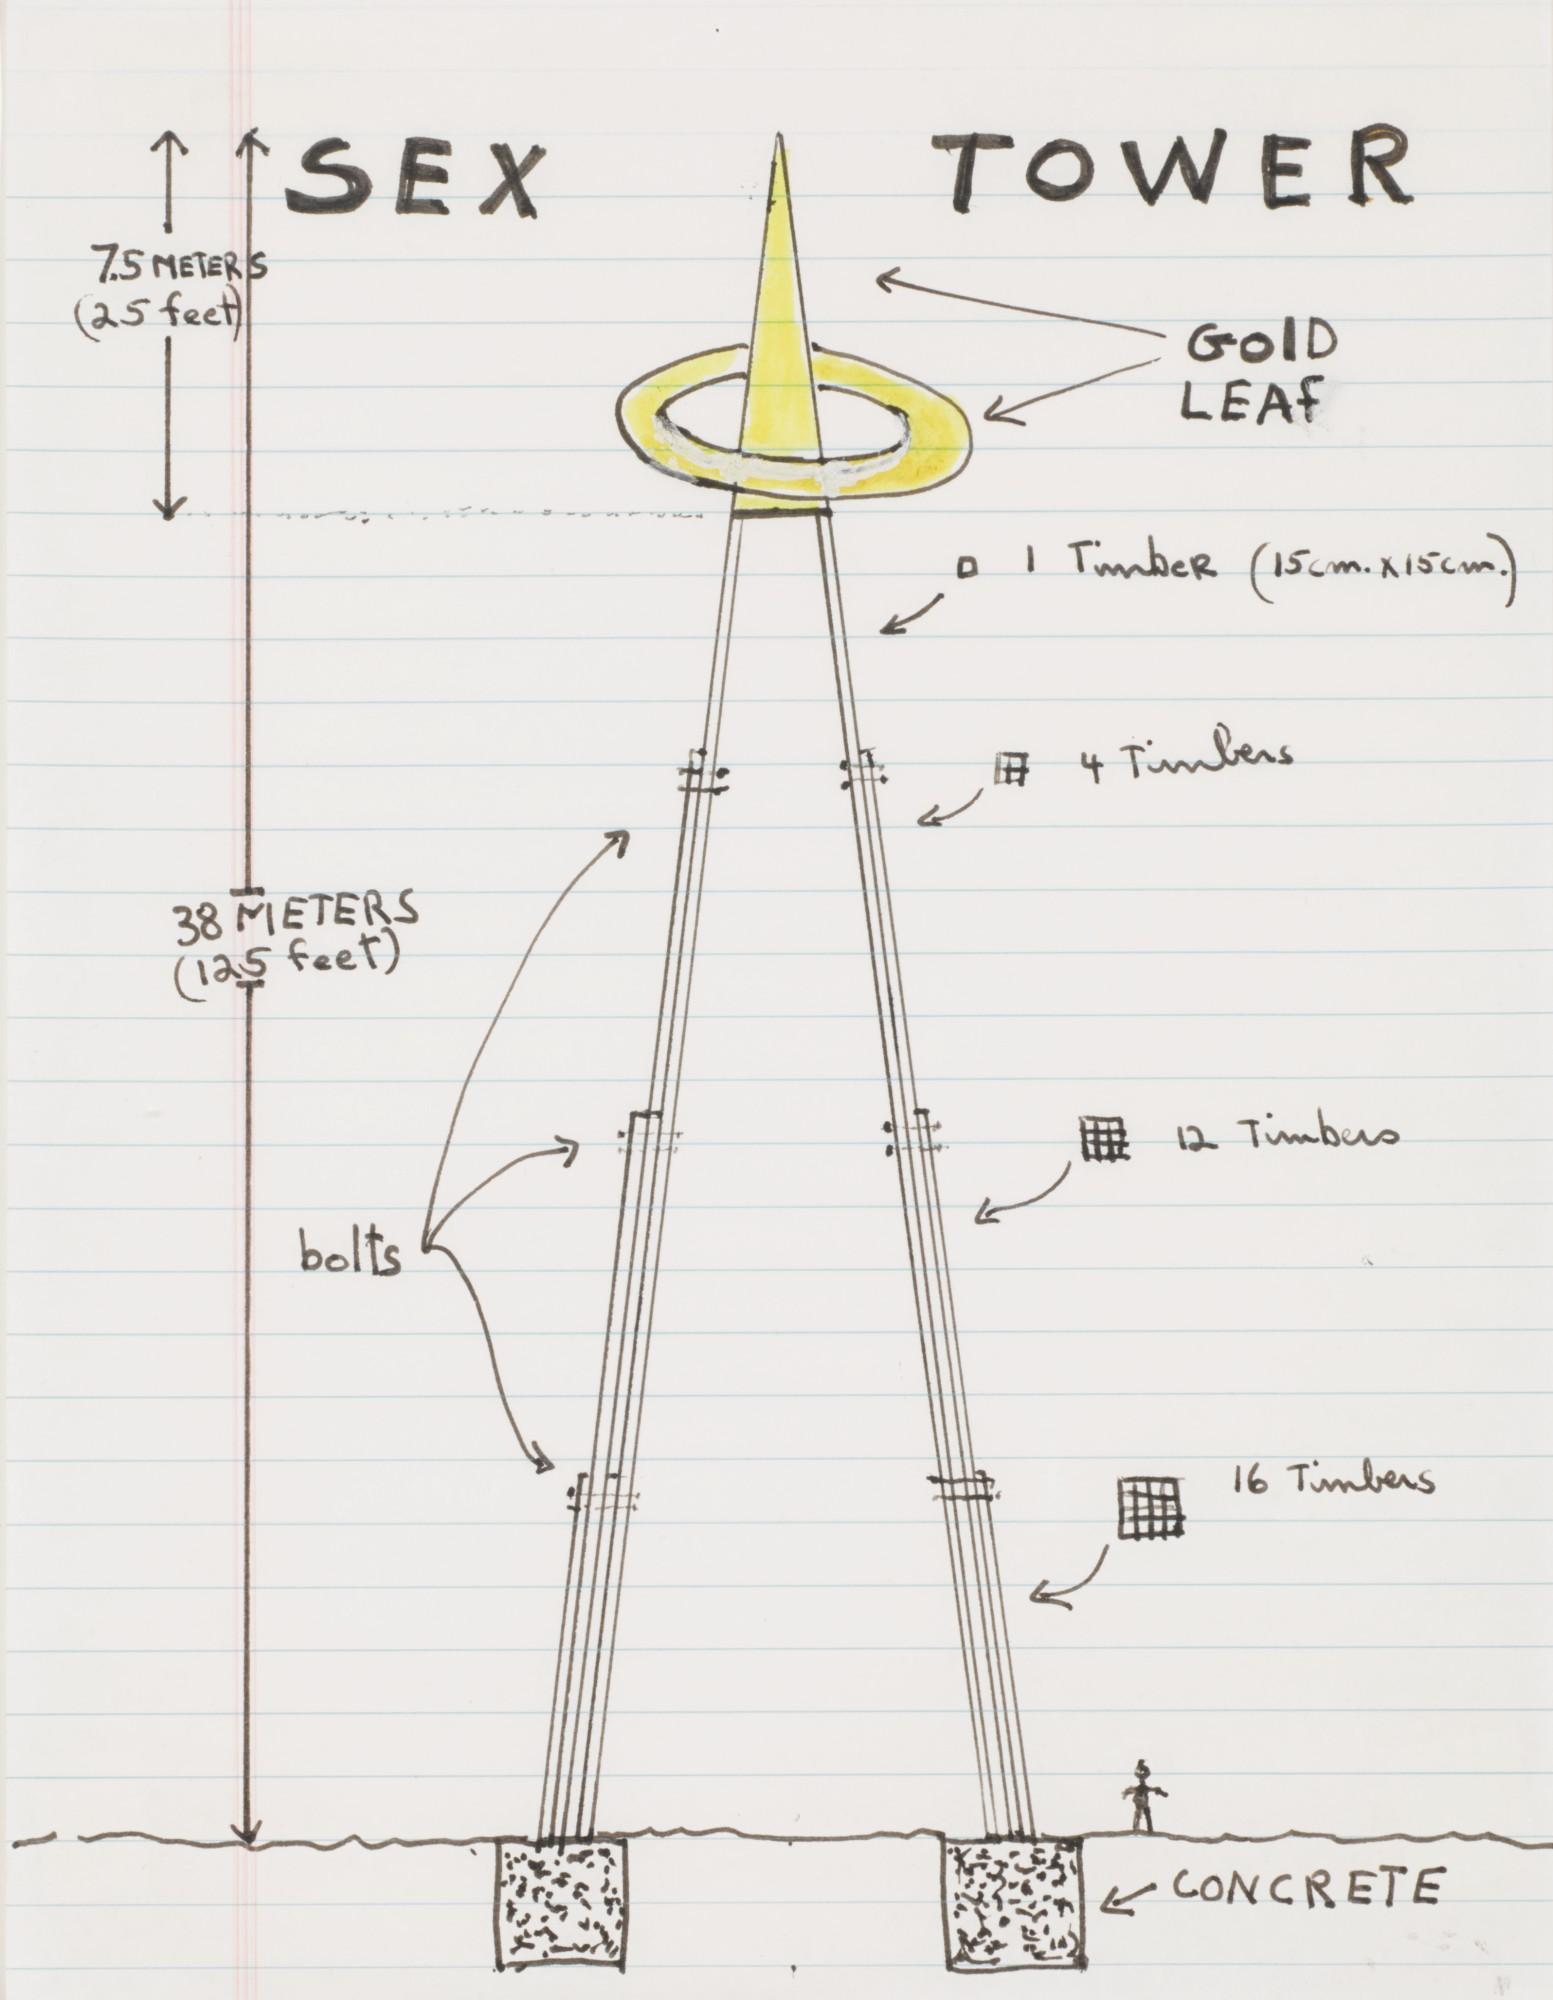 SEX TOWER
7.5 METERS
(25 feet)
GOLD
LEAF
1 Timber (15cm. x 15cm.)
4 Timbers
38 METERS
(125 feet)
12 Timbers
bolts
16 Timbers
CONCRETE